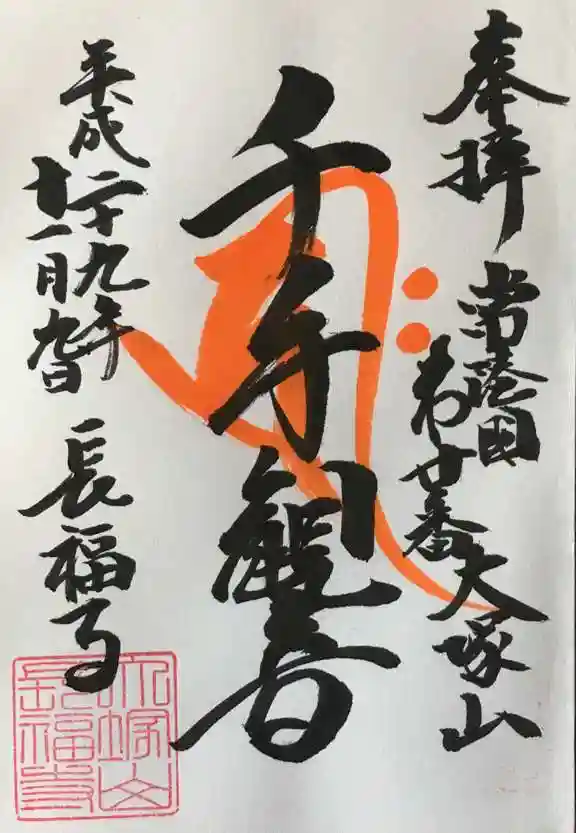 奉拝
常陸国
第廿番大塚山
千手観音
平成二十九年
十一月九日
長福寺
大塚山
長福寺